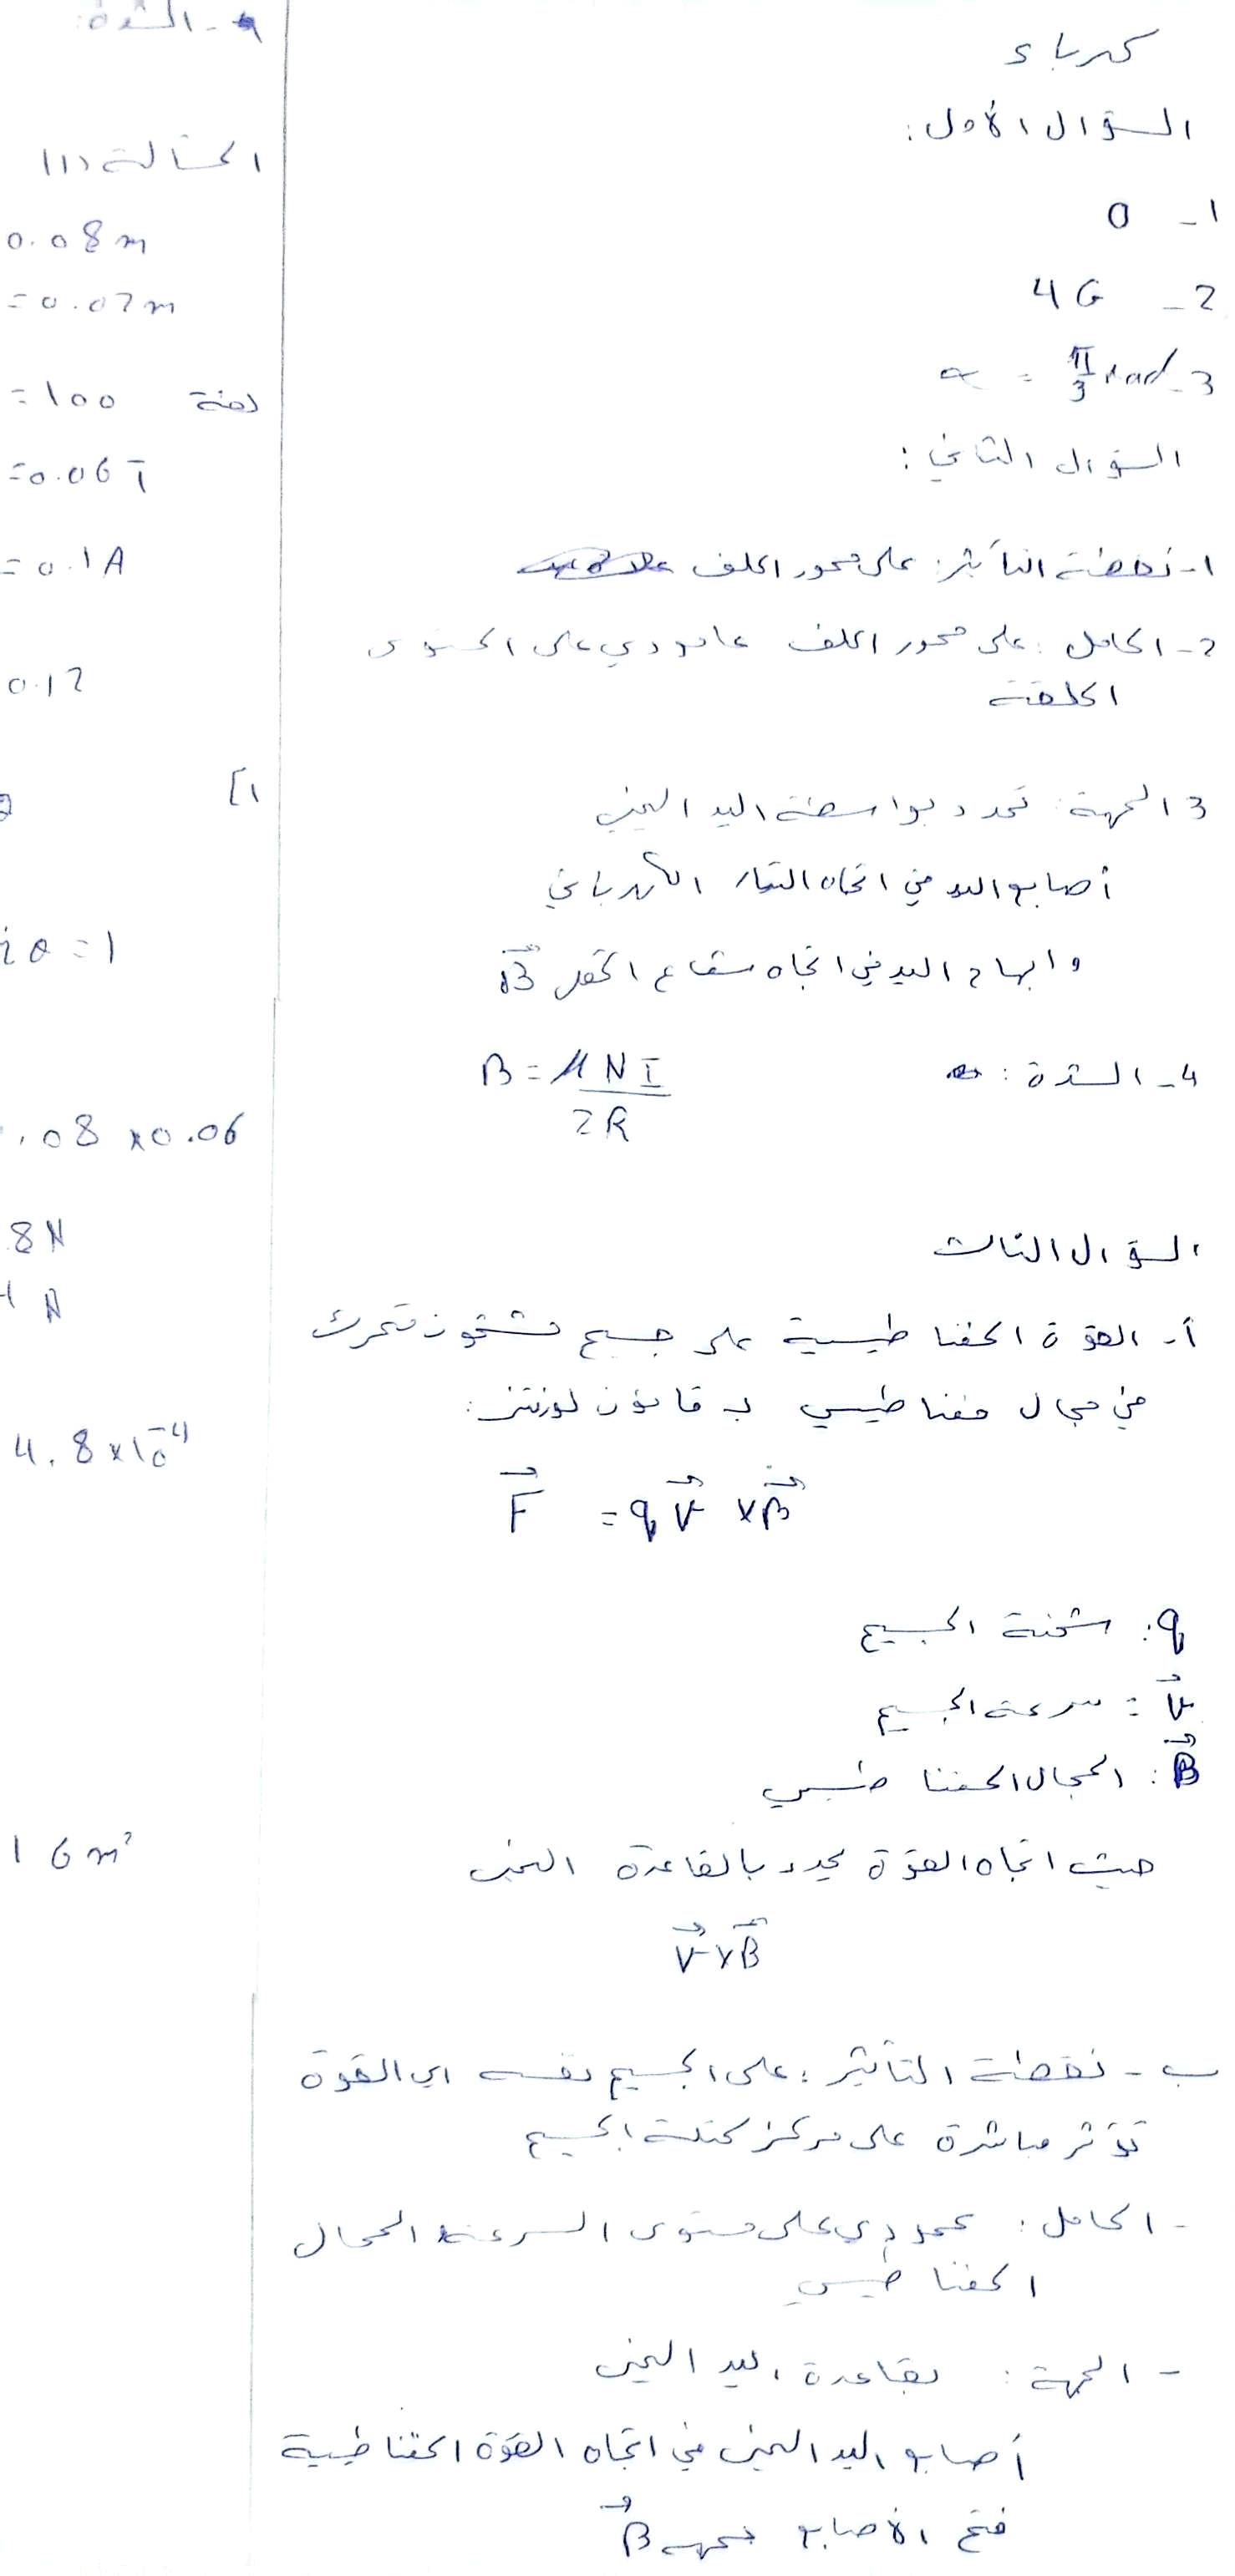 كهرباء
السؤال الأول:
1 - 0
2 - 4G
3 - α = π/3 rad
السؤال الثاني:
1 - نقطة التأثير: على محور الملف
2 - الحامل: على محور الملف عامودي على المستوى
الحلقة
3 الجهة: تحدد بواسطة اليد اليمنى
أصابع اليد في اتجاه التيار الكهربائي
وابهام اليد في اتجاه شعاع الحقل B⃗
4 - الشدة: B = μNI / 2R
السؤال الثالث
أ - القوة المغناطيسية على جسيم مشحون متحرك
في مجال مغناطيسي بـ قانون لورنتز:
F⃗ = q v⃗ × B⃗
q: شحنة الجسيم
v⃗: سرعة الجسيم
B⃗: المجال المغناطيسي
حيث اتجاه القوة يحدد بالقاعدة اليمنى
v⃗ × B⃗
ب - نقطة التأثير: على الجسيم نفسه اي القوة
تؤثر مباشرة على مركز كتلة الجسيم
- الحامل: عمودي على مستوى السرعة المجال
المغناطيسي
- الجهة: بقاعدة اليد اليمنى
أصابع اليد اليمنى في اتجاه القوة المغناطيسية
فتح الأصابع بجهة B⃗
- الشدة:
المسألة (1)
0.08 m
= 0.07 m
= 100 لفة
= 0.06 T
= 0.1 A
0.12
[1
θ = 1
.08 × 0.06
8 N
N
4.8 × 10⁻⁴
16 m²